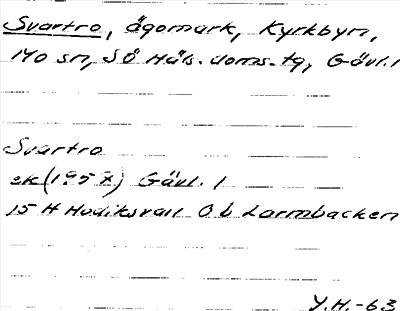 Svartro, ägomark, Kyrkbyn,
Mo sn, SÖ Häls. doms. tg, Gävl. l
Svartro
ek (1957) Gävl. l
15 H Hudiksvall 0 b Larmbacken
Y.H.-63